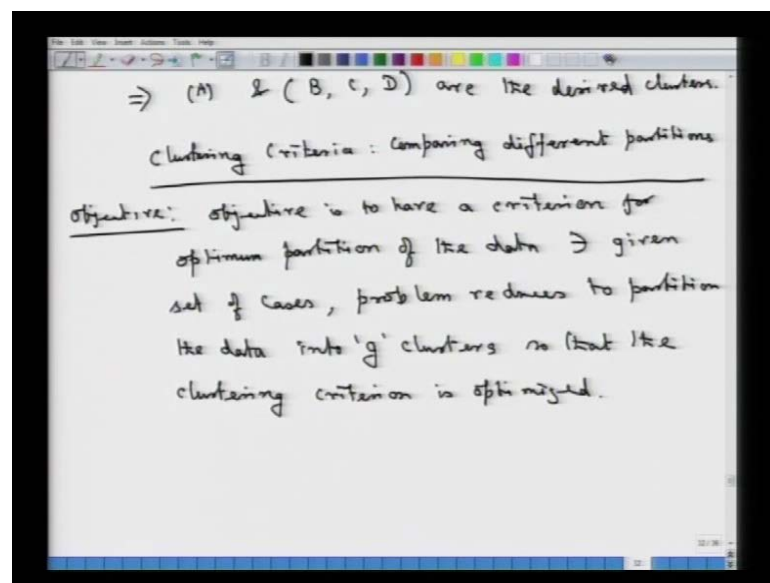 File Edit View Insert Actions Tools Help
⇒ (A) & (B, C, D) are the desired clusters.
Clustering Criteria : Comparing different partitions
Objective: Objective is to have a criterion for
optimum partition of the data ∋ given
set of cases, problem reduces to partition
the data into 'g' clusters so that the
clustering criterion is optimized.
12/36
12